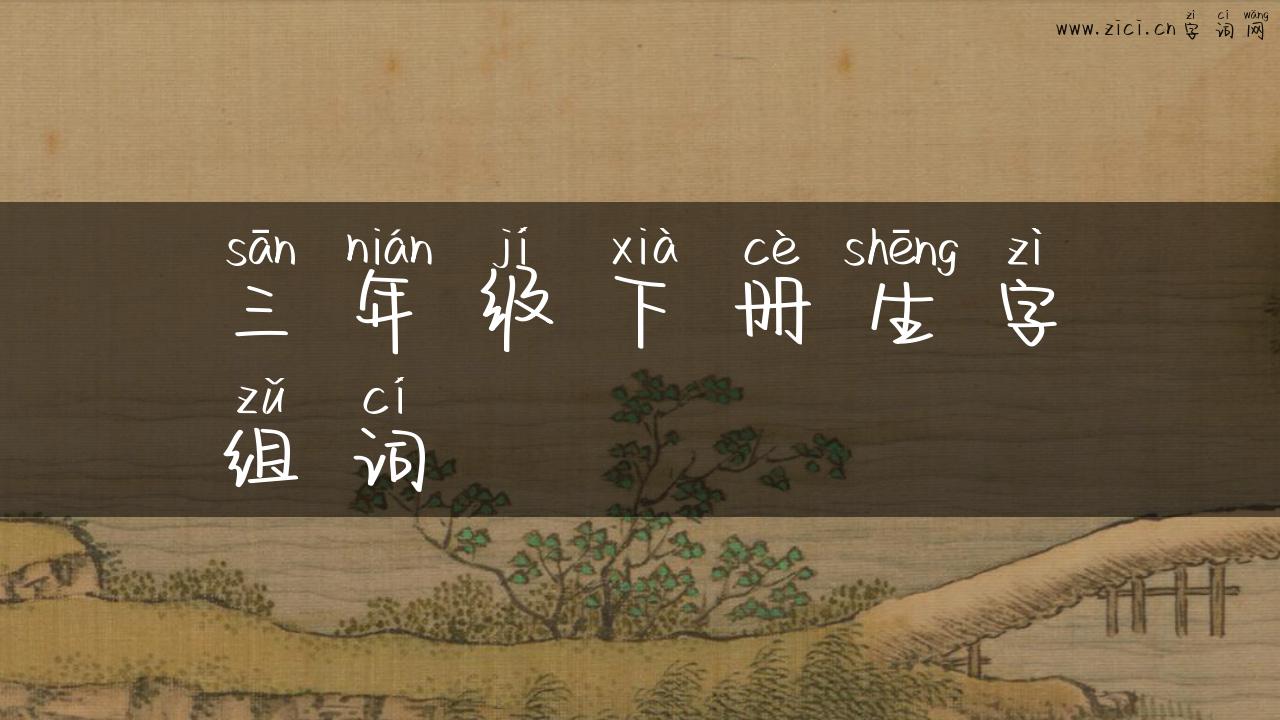 zì cí wǎng
www.zici.cn 字词网
sān nián jí xià cè shēng zì
三年级下册生字
zǔ cí
组词